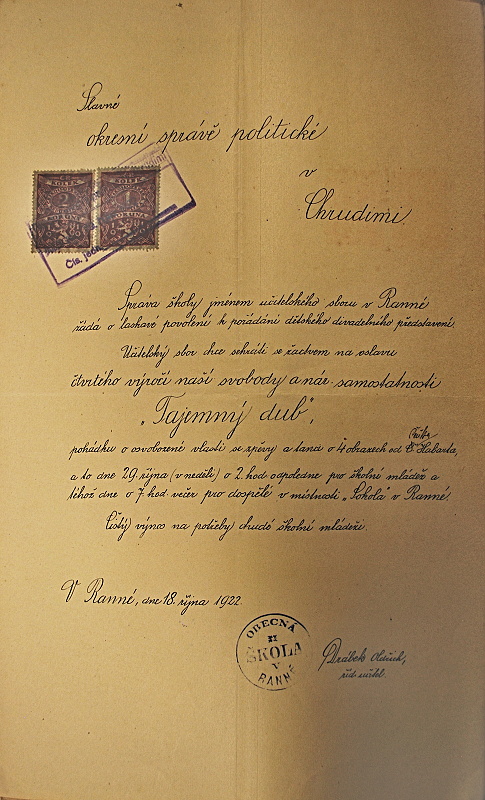 Slavné
okresní správě politické
v
Chrudimi.
KOLEK
2
KORUNA
KOLEK
1
KORUNA
Čís. jed
Správa školy jménem učitelského sboru v Ranné
žádá o laskavé povolení k pořádání dětského divadelního představení.
Učitelský sbor chce sehráti se žactvem na oslavu
čtvrtého výročí naší svobody a nár. samostatnosti
„Tajemný dub",
pohádku o osvobozené vlasti se zpěvy a tanci o 4 obrazech od Habarta,
a to dne 29. října (v neděli) o 2. hod. odpoledne pro školní mládež a
téhož dne o 7. hod. večer pro dospělé v místnosti „Sokola" v Ranné.
Čistý výnos na potřeby chudé školní mládeže.
V Ranné, dne 18. října 1922.
OBECNÁ
ŠKOLA
V
RANNÉ
Drábek Oldřich,
říd. učitel.